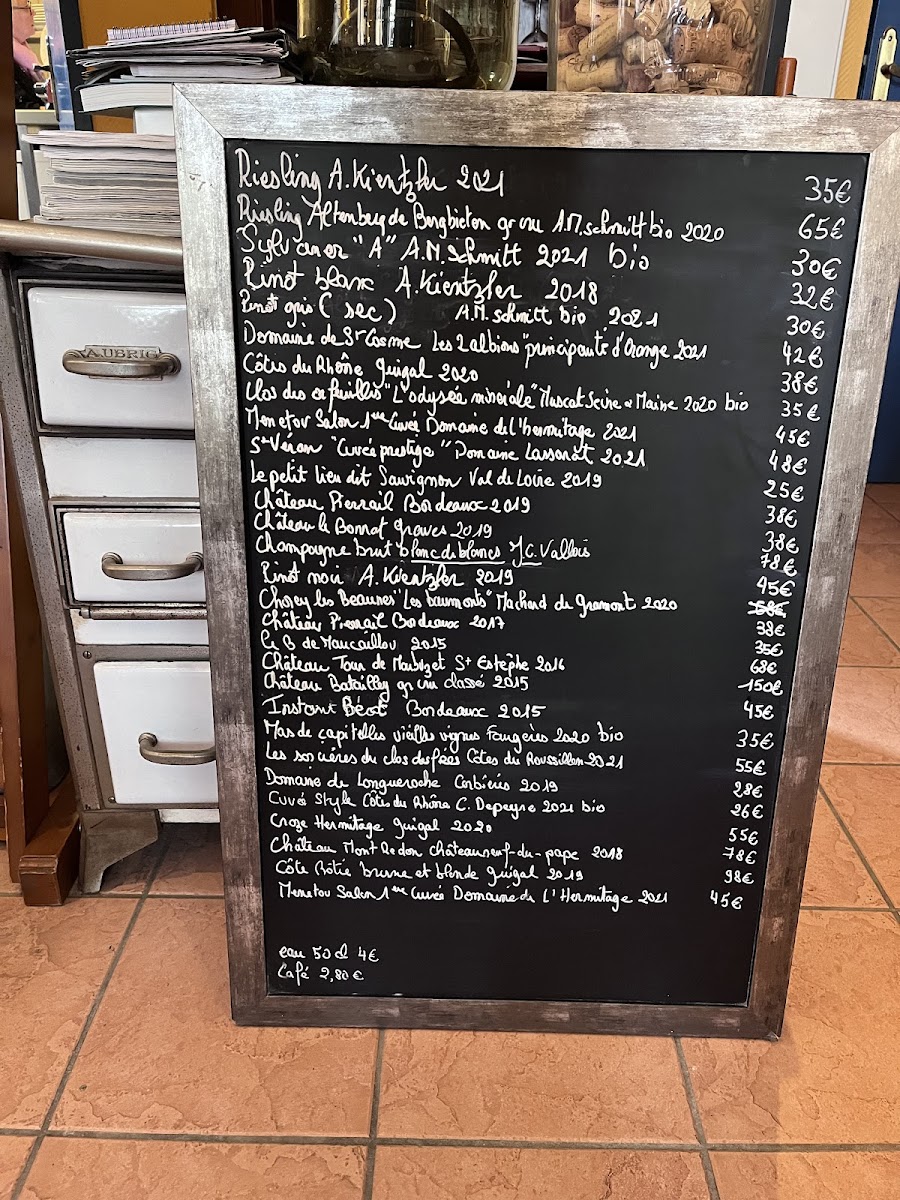 AUBRIC
Riesling A. Kientzler 2021 35€
Riesling Altenberg de Bergbieten gr cru A.M. schmitt bio 2020 65€
Sylvaner "A" A.M. Schmitt 2021 bio 30€
Pinot blanc A. Kientzler 2018 32€
Pinot gris (sec) A.M. schmitt bio 2021 30€
Domaine de St Cosme Les 2 albions "principauté d'Orange 2021 42€
Côtes du Rhône Guigal 2020 38€
Clos des orfeuilles "L'odysée minérale" Muscat Sèvre et Maine 2020 bio 35€
Menetou Salon 1ère Cuvée Domaine de l'hermitage 2021 45€
St Véran "Cuvée prestige" Domaine Lassarat 2021 48€
Le petit lieu dit Sauvignon Val de Loire 2019 25€
Château Pierrail Bordeaux 2019 38€
Château le Bonnat graves 2019 38€
Champagne brut blanc de blancs J.C. Vallois 78€
Pinot noir A. Kientzler 2019 45€
Chorey les Beaunes "Les beaumonts" Machard de Gramont 2020 58€
Château Pierrail Bordeaux 2017 38€
Le B de Maucaillou 2015 35€
Château Tour de Marbuzet St Estèphe 2016 68€
Château Batailley gr cru classé 2015 150€
Instant Bérot Bordeaux 2015 45€
Mas de capitelles vieilles vignes Faugères 2020 bio 35€
Les sorcières du clos des fées Côtes du Roussillon 2021 55€
Domaine de Longueroche Corbières 2019 28€
Cuvé Style Côtes du Rhône C. Depeyre 2021 bio 26€
Croze Hermitage Guigal 2020 55€
Château Mont Redon Châteauneuf-du-pape 2018 78€
Côte Rôtie brune et blonde Guigal 2019 98€
Menetou Salon 1ère Cuvée Domaine de L'Hermitage 2021 45€
eau 50 cl 4€
Café 2,80€